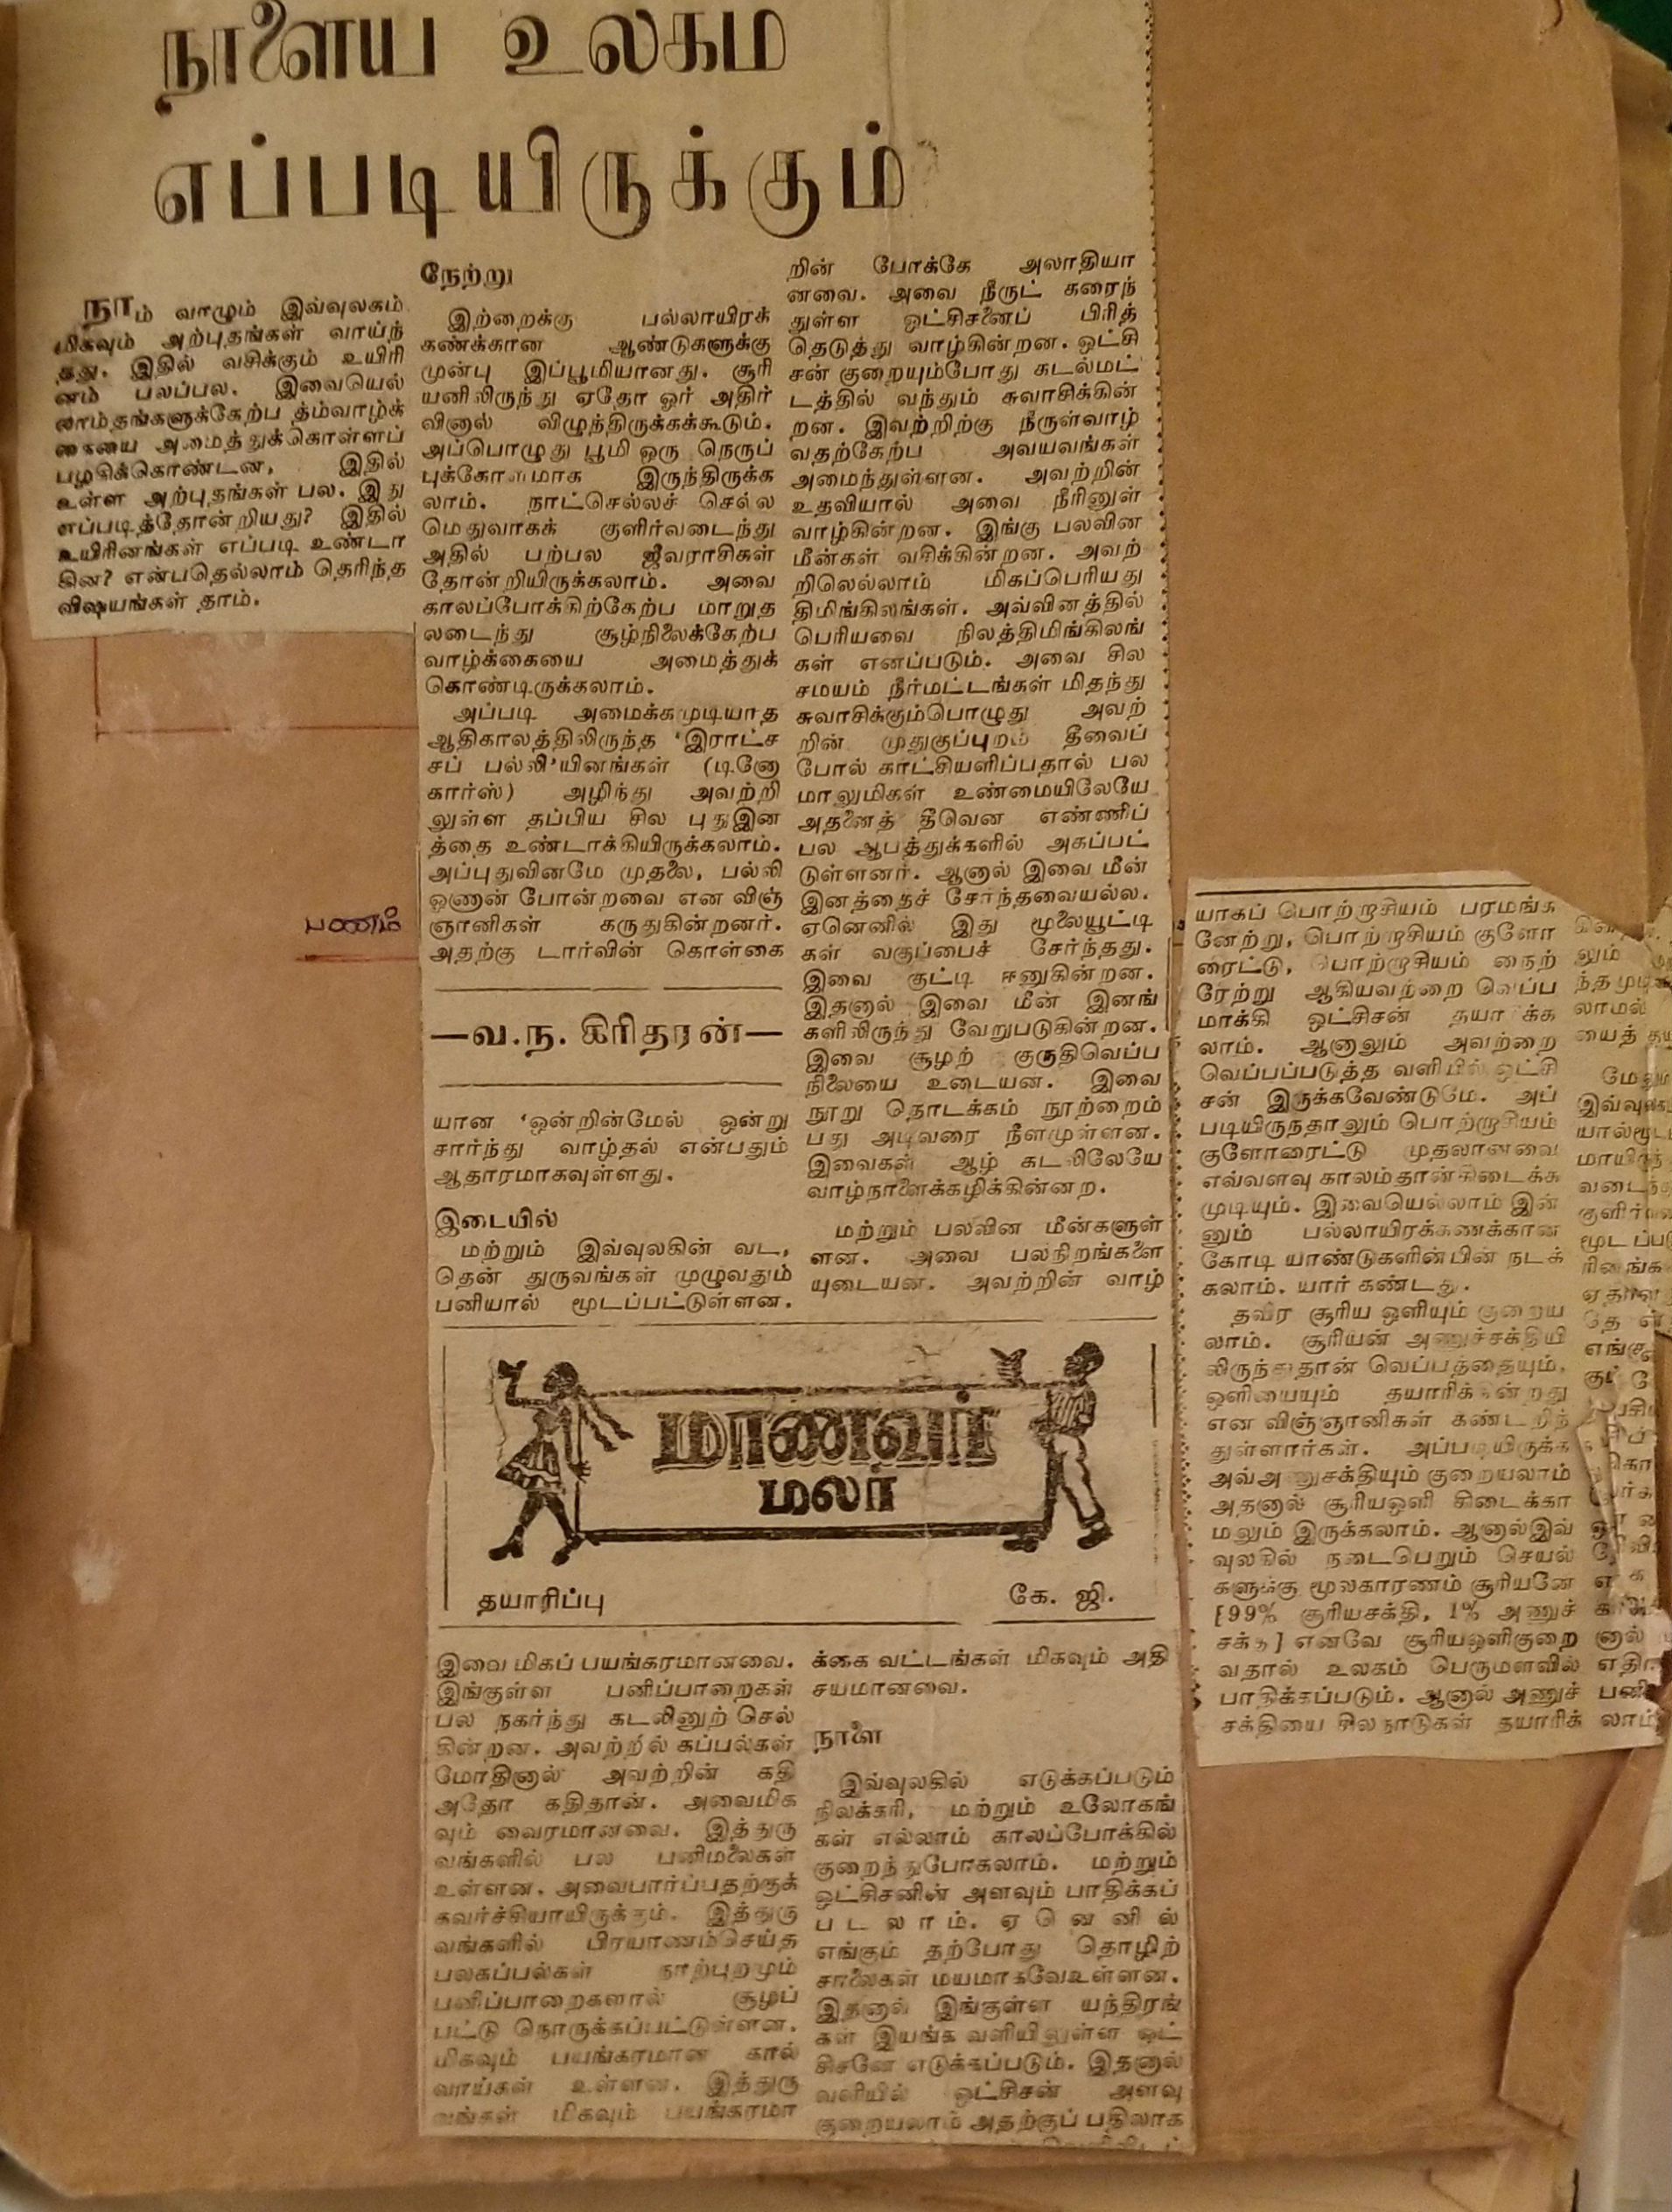 நாளைய உலகம்
எப்படியிருக்கும்
நாம் வாழும் இவ்வுலகம்
மிகவும் அற்புதங்கள் வாய்ந்
தது. இதில் வசிக்கும் உயிரி
னம் பலப்பல. இவையெல்
லாம்தங்களுக்கேற்ப தம்வாழ்க்
கையை அமைத்துக்கொள்ளப்
பழகிக்கொண்டன, இதில்
உள்ள அற்புதங்கள் பல. இது
எப்படித்தோன்றியது? இதில்
உயிரினங்கள் எப்படி உண்டா
கின? என்பதெல்லாம் தெரிந்த
விஷயங்கள் தாம்.
நேற்று
இற்றைக்கு பல்லாயிரக்
கணக்கான ஆண்டுகளுக்கு
முன்பு இப்பூமியானது. சூரி
யனிலிருந்து ஏதோ ஓர் அதிர்
வினால் விழுந்திருக்கக்கூடும்.
அப்பொழுது பூமி ஒரு நெருப்
புக்கோளமாக இருந்திருக்க
லாம். நாட்செல்லச் செல்ல
மெதுவாகக் குளிர்வடைந்து
அதில் பற்பல ஜீவராசிகள்
தோன்றியிருக்கலாம். அவை
காலப்போக்கிற்கேற்ப மாறுத
லடைந்து சூழ்நிலைக்கேற்ப
வாழ்க்கையை அமைத்துக்
கொண்டிருக்கலாம்.
அப்படி அமைக்கமுடியாத
ஆதிகாலத்திலிருந்த 'இராட்ச
சப் பல்லி'யினங்கள் (டினோ
கார்ஸ்) அழிந்து அவற்றி
லுள்ள தப்பிய சில புதுஇன
த்தை உண்டாக்கியிருக்கலாம்.
அப்புதுவினமே முதலை, பல்லி
ஓணான் போன்றவை என விஞ்
ஞானிகள் கருதுகின்றனர்.
அதற்கு டார்வின் கொள்கை
—வ.ந. கிரிதரன்—
யான 'ஒன்றின்மேல் ஒன்று
சார்ந்து வாழ்தல் என்பதும்
ஆதாரமாகவுள்ளது.
இடையில்
மற்றும் இவ்வுலகின் வட,
தென் துருவங்கள் முழுவதும்
பனியால் மூடப்பட்டுள்ளன.
றின் போக்கே அலாதியா
னவை. அவை நீருட் கரைந்
துள்ள ஒட்சிசனைப் பிரித்
தெடுத்து வாழ்கின்றன. ஒட்சி
சன் குறையும்போது கடல்மட்
டத்தில் வந்தும் சுவாசிக்கின்
றன. இவற்றிற்கு நீருள்வாழ்
வதற்கேற்ப அவயவங்கள்
அமைந்துள்ளன. அவற்றின்
உதவியால் அவை நீரினுள்
வாழ்கின்றன. இங்கு பலவின
மீன்கள் வசிக்கின்றன. அவற்
றிலெல்லாம் மிகப்பெரியது
திமிங்கிலங்கள். அவ்வினத்தில்
பெரியவை நிலத்திமிங்கிலங்
கள் எனப்படும். அவை சில
சமயம் நீர்மட்டங்கள் மிதந்து
சுவாசிக்கும்பொழுது அவற்
றின் முதுகுப்புறம் தீவைப்
போல் காட்சியளிப்பதால் பல
மாலுமிகள் உண்மையிலேயே
அதனைத் தீவென எண்ணிப்
பல ஆபத்துக்களில் அகப்பட்
டுள்ளனர். ஆனால் இவை மீன்
இனத்தைச் சேர்ந்தவையல்ல.
ஏனெனில் இது மூலையூட்டி
கள் வகுப்பைச் சேர்ந்தது.
இவை குட்டி ஈனுகின்றன.
இதனால் இவை மீன் இனங்
களிலிருந்து வேறுபடுகின்றன.
இவை சூழற் குருதிவெப்ப
நிலையை உடையன. இவை
நூறு தொடக்கம் நூற்றைம்
பது அடிவரை நீளமுள்ளன.
இவைகள் ஆழ் கடலிலேயே
வாழ்நாளைக்கழிக்கின்றன.
மற்றும் பலவின மீன்களுள்
ளன. அவை பலநிறங்களை
யுடையன. அவற்றின் வாழ்
மாணவர்
மலர்
தயாரிப்பு கே. ஜி.
இவை மிகப் பயங்கரமானவை.
இங்குள்ள பனிப்பாறைகள்
பல நகர்ந்து கடலினுற் செல்
கின்றன. அவற்றில் கப்பல்கள்
மோதினால் அவற்றின் கதி
அதோ கதிதான். அவைமிக
வும் வைரமானவை. இத்துரு
வங்களில் பல பனிமலைகள்
உள்ளன. அவைபார்ப்பதற்குக்
கவர்ச்சியாயிருக்கும். இத்துரு
வங்களில் பிரயாணம்செய்த
பலகப்பல்கள் நாற்புறமும்
பனிப்பாறைகளால் சூழப்
பட்டு நொருக்கப்பட்டுள்ளன.
மிகவும் பயங்கரமான கால்
வாய்கள் உள்ளன. இத்துரு
வங்கள் மிகவும் பயங்கரமா
க்கை வட்டங்கள் மிகவும் அதி
சயமானவை.
நாளை
இவ்வுலகில் எடுக்கப்படும்
நிலக்கரி, மற்றும் உலோகங்
கள் எல்லாம் காலப்போக்கில்
குறைந்துபோகலாம். மற்றும்
ஒட்சிசனின் அளவும் பாதிக்கப்
படலாம். ஏனெனில்
எங்கும் தற்போது தொழிற்
சாலைகள் மயமாகவேஉள்ளன.
இதனால் இங்குள்ள யந்திரங்
கள் இயங்க வளியிலுள்ள ஒட்
சிசனே எடுக்கப்படும். இதனால்
வளியில் ஒட்சிசன் அளவு
குறையலாம் அதற்குப் பதிலாக
பணம்
யாகப் பொற்றாசியம் பரமங்க
னேற்று, பொற்றாசியம் குளோ
ரைட்டு, பொற்றாசியம் நைற்
ரேற்று ஆகியவற்றை வெப்ப
மாக்கி ஒட்சிசன் தயாரிக்க
லாம். ஆனாலும் அவற்றை
வெப்பப்படுத்த வளியில் ஒட்சி
சன் இருக்கவேண்டுமே. அப்
படியிருந்தாலும் பொற்றாசியம்
குளோரைட்டு முதலானவை
எவ்வளவு காலம்தான்கிடைக்க
முடியும். இவையெல்லாம் இன்
னும் பல்லாயிரக்கணக்கான
கோடி யாண்டுகளின்பின் நடக்
கலாம். யார் கண்டது.
தவிர சூரிய ஒளியும் குறைய
லாம். சூரியன் அணுச்சக்தியி
லிருந்துதான் வெப்பத்தையும்,
ஒளியையும் தயாரிக்கின்றது
என விஞ்ஞானிகள் கண்டறிந்
துள்ளார்கள். அப்படியிருக்க
அவ்அணுசக்தியும் குறையலாம்
அதனால் சூரியஒளி கிடைக்கா
மலும் இருக்கலாம். ஆனால்இவ்
வுலகில் நடைபெறும் செயல்
களுக்கு மூலகாரணம் சூரியனே
[99% சூரியசக்தி, 1% அணுச்
சக்தி] எனவே சூரியஒளிகுறை
வதால் உலகம் பெருமளவில்
பாதிக்கப்படும். ஆனால் அணுச்
சக்தியை சிலநாடுகள் தயாரிக்
லும்
ந்தமுடி
லாமல்
யைத்
மேலும்
இவ்வுலக
யால்மூட
மாயிருந்
வடைந்
குளிர்
மூடப்ப
ரினங்க
எங்கு
னால்
எதிர
பனி
லாம்